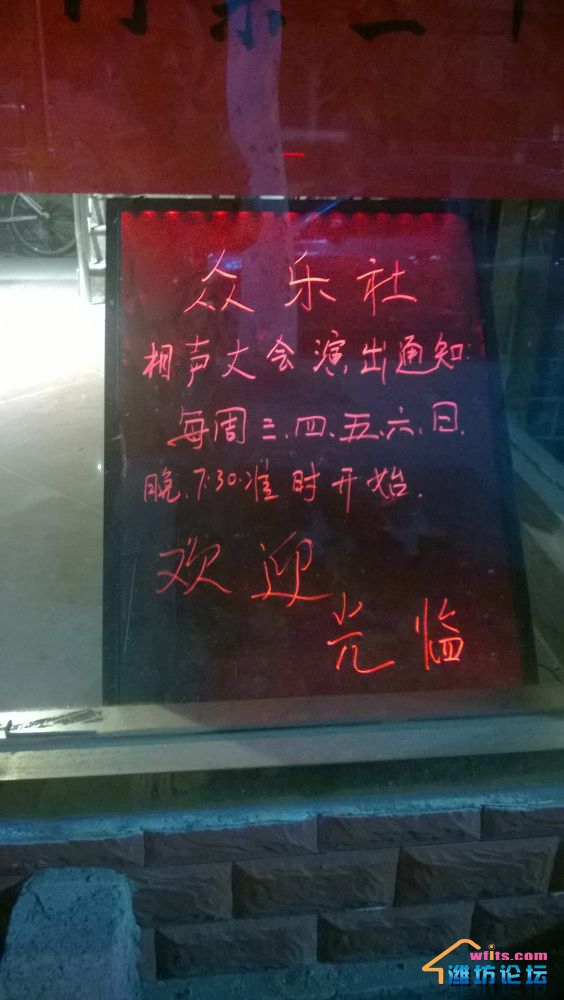 众乐社
相声大会演出通知:
每周三.四.五.六.日.
晚.7:30.准时开始.
欢迎
光临
wfits.com
潍坊论坛